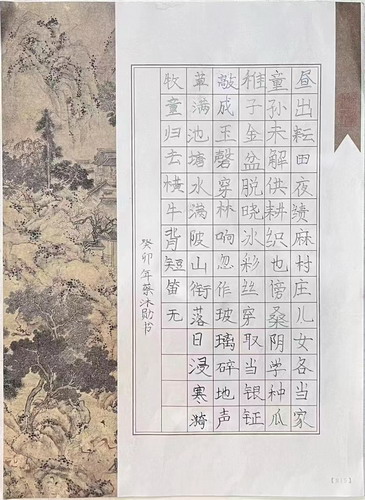 昼出耘田夜绩麻村庄儿女各当家
童孙未解供耕织也傍桑阴学种瓜
稚子金盆脱晓冰彩丝穿取当银钲
敲成玉磬穿林响忽作玻璃碎地声
草满池塘水满陂山衔落日浸寒漪
牧童归去横牛背短笛无
癸卯年蔡沐书